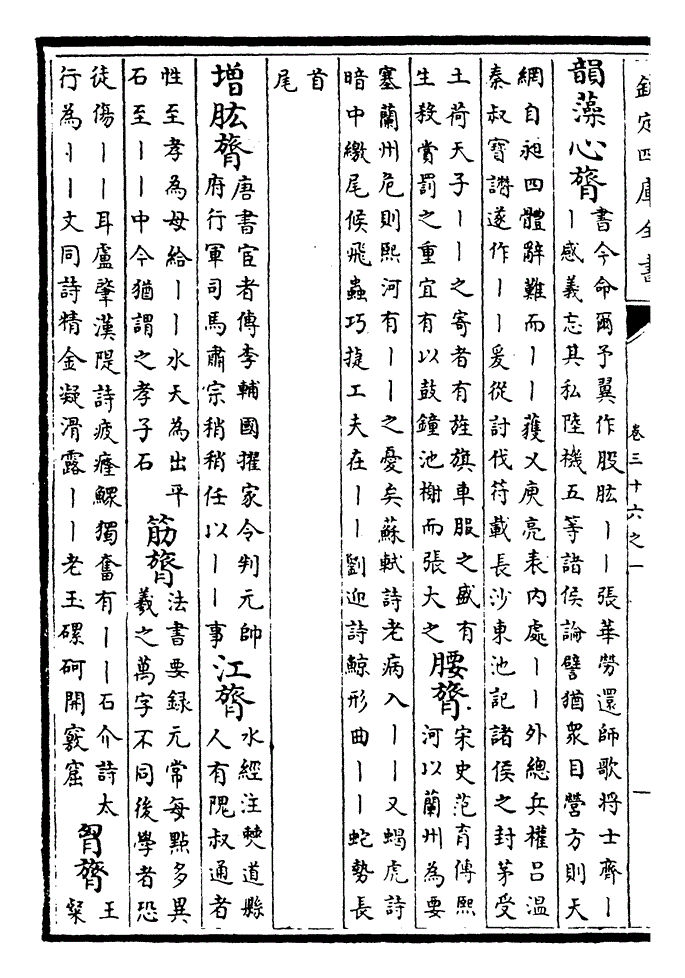 欽定四庫全書
卷三十六之一
一
韻藻心膂
書今命爾予翼作股肱丨丨張華勞還師歌将士齊丨
丨感義忘其私陸機五等諸侯論譬猶衆目營方則天
網自昶四體辭難而丨丨獲乂庾亮表内處丨丨外總兵權吕温
秦叔寳讃遂作丨丨爰從討伐符載長沙東池記諸侯之封茅受
土荷天子丨丨之寄者有旌旗車服之盛有
生殺賞罰之重宜有以鼓鐘池榭而張大之
腰膂
宋史范育傳熙
河以蘭州為要
塞蘭州危則熙河有丨丨之憂矣蘇軾詩老病入丨丨又蝎虎詩
暗中繳尾候飛蟲巧捷工夫在丨丨劉迎詩鯨形曲丨丨蛇勢長
首
尾
增肱膂
唐書宦者傳李輔國擢家令判元帥
府行軍司馬肅宗稍稍任以丨丨事
江膂
水經注僰道縣
人有隗叔通者
性至孝為母給丨丨水天為出平
石至丨丨中今猶謂之孝子石
筋膂
法書要録元常每點多異
羲之萬字不同後學者恐
徒傷丨丨耳盧肇漢隄詩疲癃鰥獨奮有丨丨石介詩太
行為丨丨文同詩精金凝滑露丨丨老玉磥砢開竅窟
胷膂
王
粲